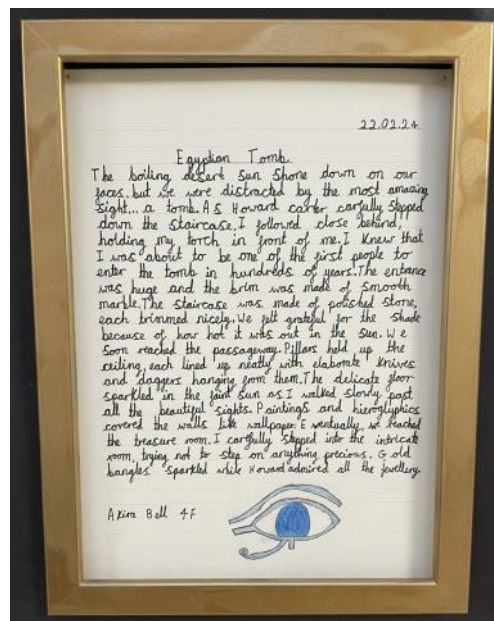 22.02.24
Egyptian Tomb
The boiling desert sun shone down on our
faces. but we were distracted by the most amazing
sight... a tomb. As Howard carter carfully stepped
down the staircase, I followed close behind,
holding my torch in front of me. I knew that
I was about to be one of the first people to
enter the tomb in hundreds of years. The entrance
was huge and the brim was made of smooth
marble. The staircase was made of polished stone,
each trimmed nicely. We felt grateful for the shade
because of how hot it was out in the sun. We
soon reached the passageway. Pillars held up the
ceiling, each lined up neatly with elaborate knives
and daggers hanging from them. The delicate floor
sparkled in the faint sun as I walked slowly past
all the beautiful sights. Paintings and hieroglyphics
covered the walls like wallpaper. Eventually, we reached
the treasure room. I carfully stepped into the intricate
room, trying not to step on anything precious. Gold
bangles sparkled while Howard admired all the jewellery.
Akira Bell 4F